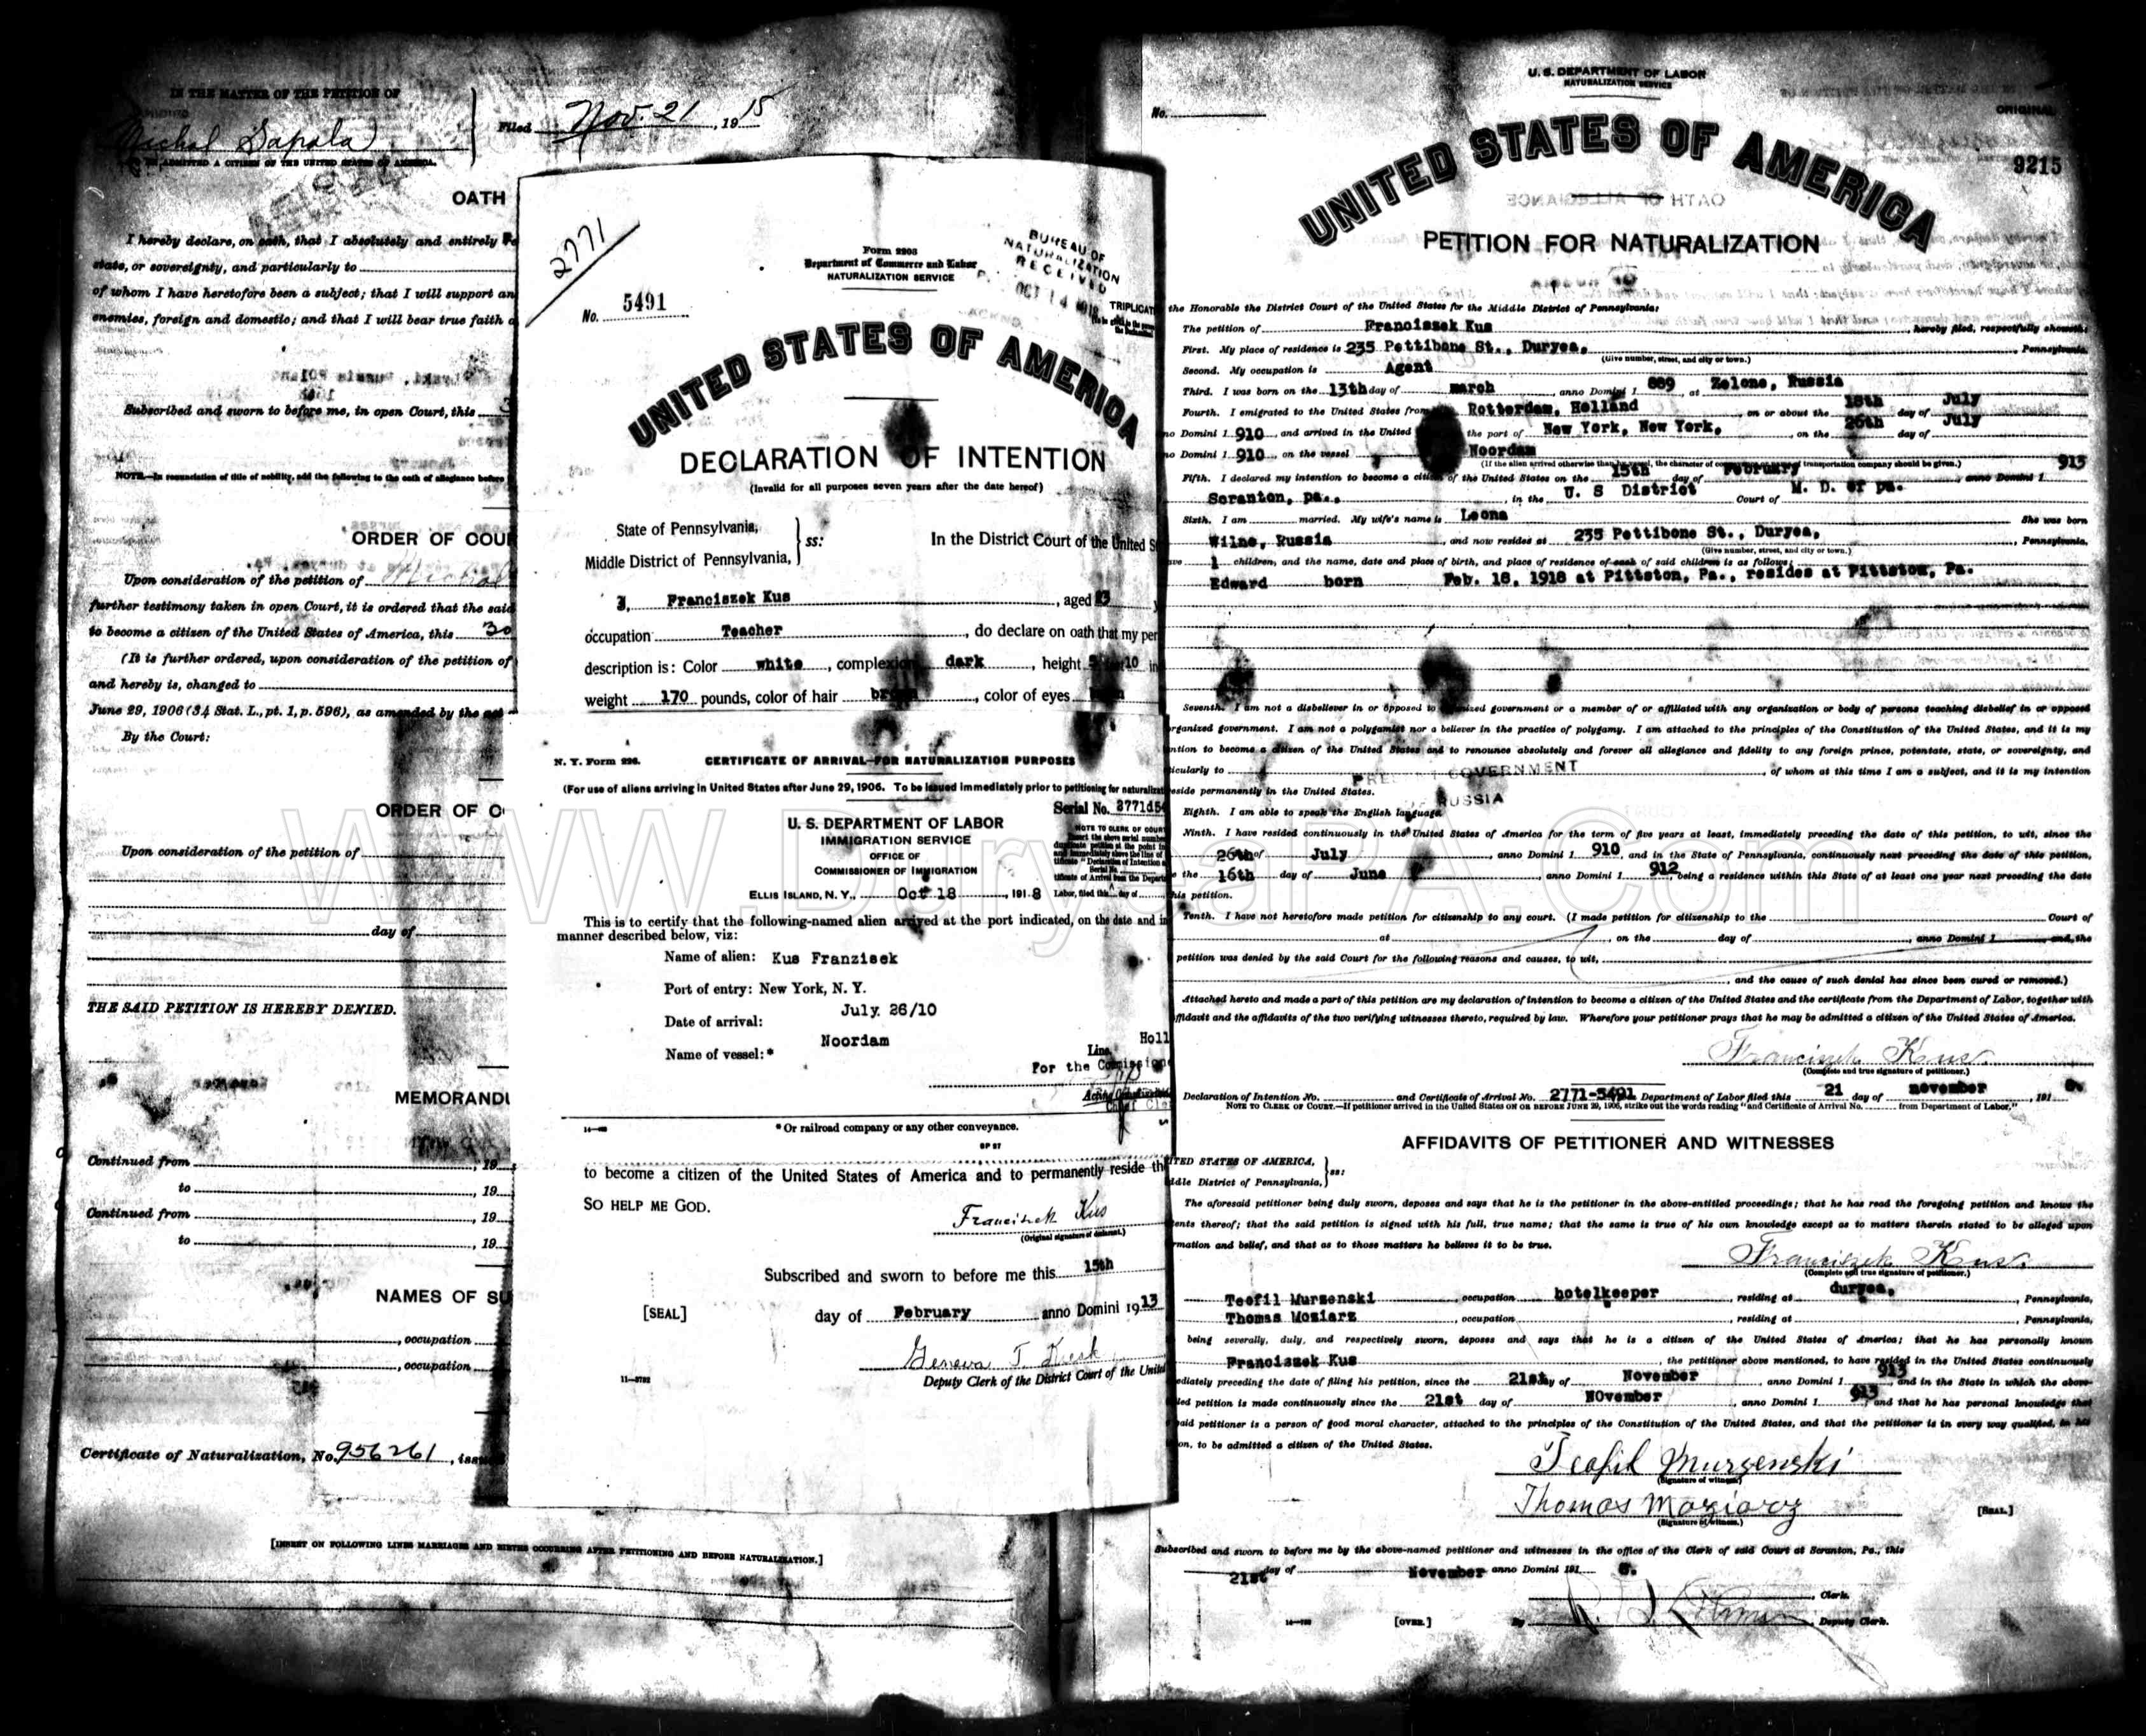 IN THE MATTER OF THE PETITION OF
Michal Sapala
TO BE ADMITTED A CITIZEN OF THE UNITED STATES OF AMERICA.
Filed Nov. 21, 1918
OATH
I hereby declare, on oath, that I absolutely and entirely
state, or sovereignty, and particularly to
of whom I have heretofore been a subject; that I will support an
enemies, foreign and domestic; and that I will bear true faith
Subscribed and sworn to before me, in open Court, this
NOTE.—In renunciation of title of nobility, add the following to the oath of allegiance before
ORDER OF COU
Upon consideration of the petition of Michal
further testimony taken in open Court, it is ordered that the said
to become a citizen of the United States of America, this 30
(It is further ordered, upon consideration of the petition of
and hereby is, changed to
June 29, 1906 (34 Stat. L., pt. 1, p. 596), as amended by the act
By the Court:
ORDER OF C
Upon consideration of the petition of
day of
THE SAID PETITION IS HEREBY DENIED.
MEMORANDU
Continued from , 19
to , 19
Continued from , 19
to , 19
NAMES OF SU
, occupation
, occupation
Certificate of Naturalization, No. 956261, issu
[INSERT ON FOLLOWING LINES MARRIAGES AND BIRTHS OCCURRING AFTER PETITIONING AND BEFORE NATURALIZATION.]
2771
Form 2203
Department of Commerce and Labor
NATURALIZATION SERVICE
BUREAU OF
NATURALIZATION
RECEIVED
OCT 14
TRIPLICAT
No. 5491
UNITED STATES OF AMERICA
DECLARATION OF INTENTION
(Invalid for all purposes seven years after the date hereof)
State of Pennsylvania,
Middle District of Pennsylvania, ss:
In the District Court of the United S
I, Franciszek Kus, aged 23
occupation Teacher, do declare on oath that my per
description is: Color white, complexion dark, height 5 feet 10 in
weight 170 pounds, color of hair brown, color of eyes
N. Y. Form 226. CERTIFICATE OF ARRIVAL—FOR NATURALIZATION PURPOSES
(For use of aliens arriving in United States after June 29, 1906. To be issued immediately prior to petitioning for naturalizat
Serial No.
U. S. DEPARTMENT OF LABOR
IMMIGRATION SERVICE
OFFICE OF
COMMISSIONER OF IMMIGRATION
ELLIS ISLAND, N. Y., Oct 18, 1918
NOTE TO CLERK OF COURT
This is to certify that the following-named alien arrived at the port indicated, on the date and in
manner described below, viz:
Name of alien: Kus Franzisek
Port of entry: New York, N. Y.
Date of arrival: July 26/10
Name of vessel:* Noordam
Holl
Line.
For the Commissione
* Or railroad company or any other conveyance.
to become a citizen of the United States of America and to permanently reside th
SO HELP ME GOD.
Franciszek Kus
(Original signature of declarant.)
Subscribed and sworn to before me this 15th
[SEAL] day of February anno Domini 1913
Geneva T.
Deputy Clerk of the District Court of the United
U. S. DEPARTMENT OF LABOR
NATURALIZATION SERVICE
No.
ORIGINAL
9215
UNITED STATES OF AMERICA
PETITION FOR NATURALIZATION
the Honorable the District Court of the United States for the Middle District of Pennsylvania:
The petition of Franciszek Kus, hereby filed, respectfully showeth:
First. My place of residence is 235 Pettibone St., Duryea, Pennsylvania
(Give number, street, and city or town.)
Second. My occupation is Agent
Third. I was born on the 13th day of march anno Domini 1889, at Zelone, Russia
Fourth. I emigrated to the United States from Rotterdam, Holland, on or about the 18th day of July
no Domini 1910, and arrived in the United the port of New York, New York, on the 26th day of July
no Domini 1910, on the vessel Noordam
(If the alien arrived otherwise than by vessel, the character of conveyance or name of transportation company should be given.)
Fifth. I declared my intention to become a citizen of the United States on the 15th day of February anno Domini 1913
Scranton, pa., in the U. S District Court of M. D. of pa.
Sixth. I am married. My wife's name is Leona She was born
Wilno, Russia, and now resides at 235 Pettibone St., Duryea, Pennsylvania.
(Give number, street, and city or town.)
ave 1 children, and the name, date and place of birth, and place of residence of each of said children is as follows:
Edward born Feb. 18, 1918 at Pittston, Pa., resides at Pittston, Pa.
Seventh. I am not a disbeliever in or opposed to organized government or a member of or affiliated with any organization or body of persons teaching disbelief in or opposed
rganized government. I am not a polygamist nor a believer in the practice of polygamy. I am attached to the principles of the Constitution of the United States, and it is my
ntion to become a citizen of the United States and to renounce absolutely and forever all allegiance and fidelity to any foreign prince, potentate, state, or sovereignty, and
icularly to PRESENT GOVERNMENT, of whom at this time I am a subject, and it is my intention
eside permanently in the United States. RUSSIA
Eighth. I am able to speak the English language.
Ninth. I have resided continuously in the United States of America for the term of five years at least, immediately preceding the date of this petition, to wit, since the
26th of July, anno Domini 1910, and in the State of Pennsylvania, continuously next preceding the date of this petition,
e the 16th day of June anno Domini 1912, being a residence within this State of at least one year next preceding the date
his petition.
Tenth. I have not heretofore made petition for citizenship to any court. (I made petition for citizenship to the Court of
at , on the day of , anno Domini 1 and, the
petition was denied by the said Court for the following reasons and causes, to wit,
, and the cause of such denial has since been cured or removed.)
Attached hereto and made a part of this petition are my declaration of intention to become a citizen of the United States and the certificate from the Department of Labor, together with
ffidavit and the affidavits of the two verifying witnesses thereto, required by law. Wherefore your petitioner prays that he may be admitted a citizen of the United States of America.
Franciszek Kus
(Complete and true signature of petitioner.)
Declaration of Intention No. and Certificate of Arrival No. 2771-5491 Department of Labor filed this 21 day of november, 1918.
NOTE TO CLERK OF COURT.—If petitioner arrived in the United States ON OR BEFORE JUNE 29, 1906, strike out the words reading "and Certificate of Arrival No. from Department of Labor."
AFFIDAVITS OF PETITIONER AND WITNESSES
ITED STATES OF AMERICA,
ddle District of Pennsylvania, ss:
The aforesaid petitioner being duly sworn, deposes and says that he is the petitioner in the above-entitled proceedings; that he has read the foregoing petition and knows the
ents thereof; that the said petition is signed with his full, true name; that the same is true of his own knowledge except as to matters therein stated to be alleged upon
rmation and belief, and that as to those matters he believes it to be true.
Franciszek Kus
(Complete and true signature of petitioner.)
Teofil Murzenski, occupation hotelkeeper, residing at duryea, Pennsylvania,
Thomas Moziarz, occupation , residing at , Pennsylvania,
being severally, duly, and respectively sworn, deposes and says that he is a citizen of the United States of America; that he has personally known
Franciszek Kus, the petitioner above mentioned, to have resided in the United States continuously
ediately preceding the date of filing his petition, since the 21st day of November, anno Domini 1913 and in the State in which the above-
led petition is made continuously since the 21st day of NOvember, anno Domini 1913 and that he has personal knowledge that
said petitioner is a person of good moral character, attached to the principles of the Constitution of the United States, and that the petitioner is in every way qualified, in his
on, to be admitted a citizen of the United States.
Teofil Murzenski
(Signature of witness.)
Thomas Moziarz
(Signature of witness.)
[SEAL.]
Subscribed and sworn to before me by the above-named petitioner and witnesses in the office of the Clerk of said Court at Scranton, Pa., this
21st day of November anno Domini 1918.
, Clerk.
[OVER.] By , Deputy Clerk.
www.DuryeaPA.com